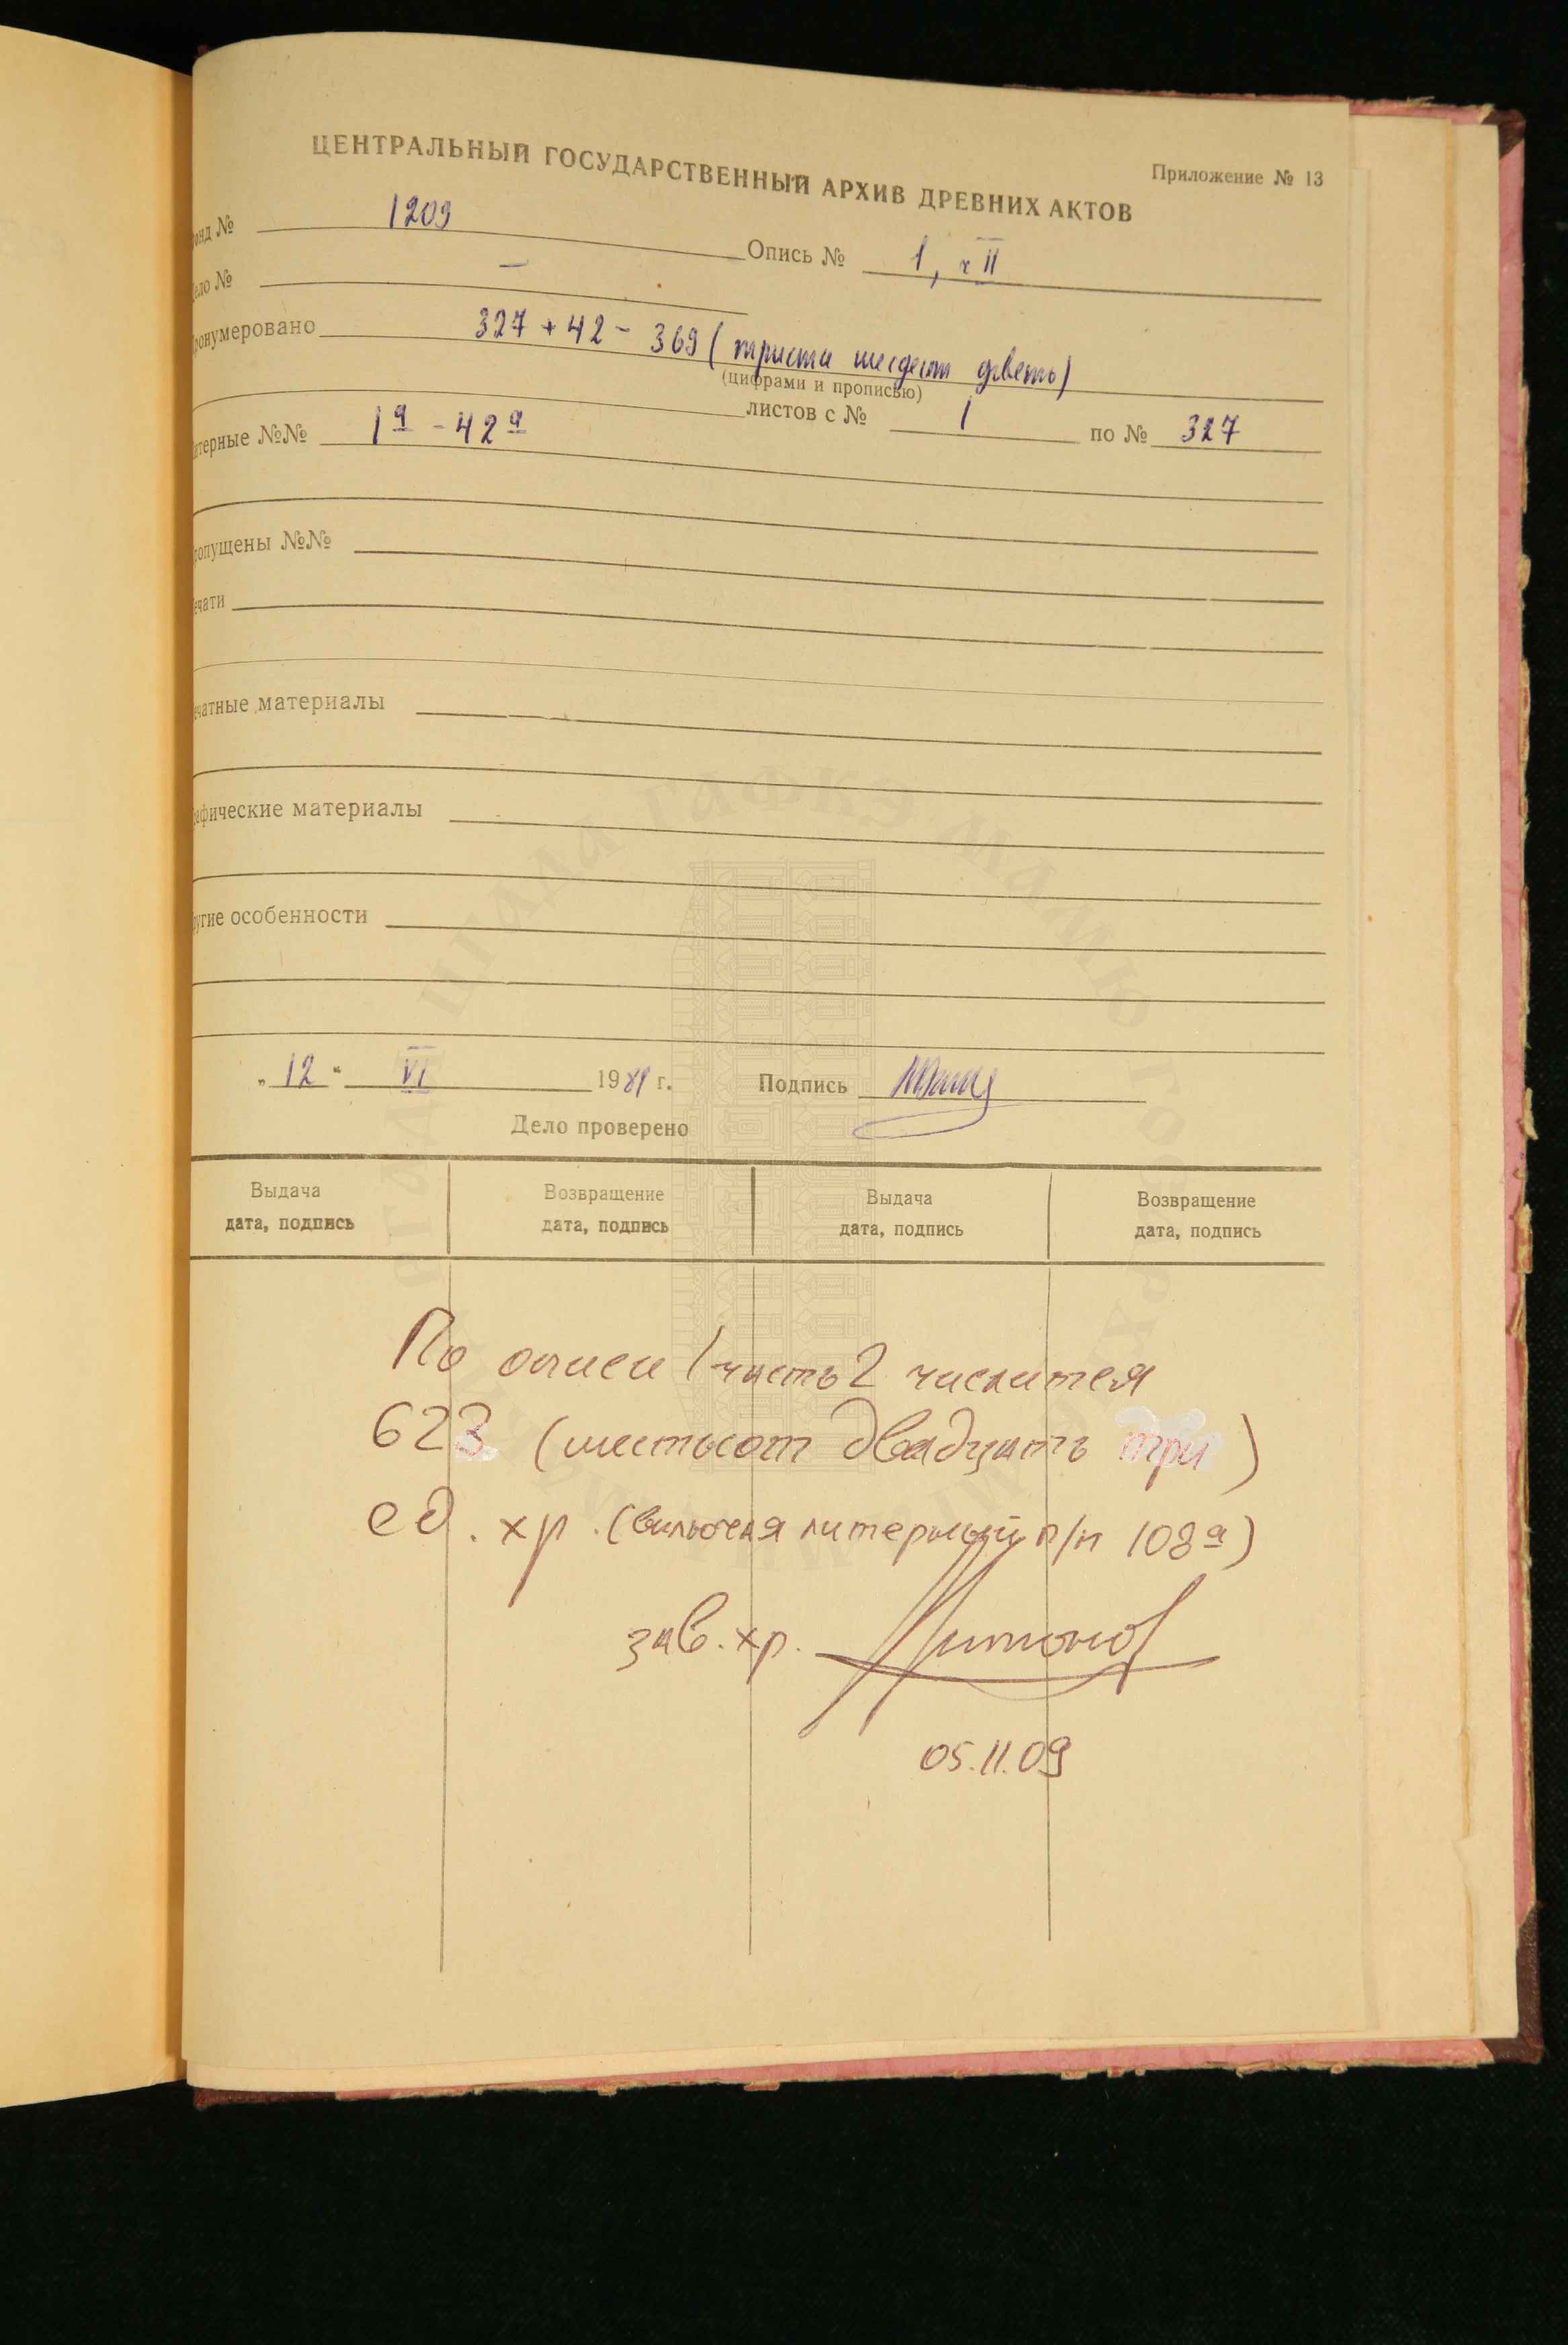 Приложение № 13
ЦЕНТРАЛЬНЫЙ ГОСУДАРСТВЕННЫЙ АРХИВ ДРЕВНИХ АКТОВ
онд № 1209 Опись № 1, ч II
ело № —
ронумеровано 327 + 42 - 369 (триста шесдесят девять)
(цифрами и прописью)
листов с № 1 по № 327
итерные №№ 1а - 42а
ропущены №№
ечати
ечатные материалы
рафические материалы
ругие особенности
„12“ VI 1981 г. Подпись
Дело проверено
Выдача дата, подпись Возвращение дата, подпись Выдача дата, подпись Возвращение дата, подпись
По описи 1 часть 2 числится
623 (шестьсот двадцать три)
ед. хр. (включая литерный п/п 108а)
зав. хр.
05.11.09